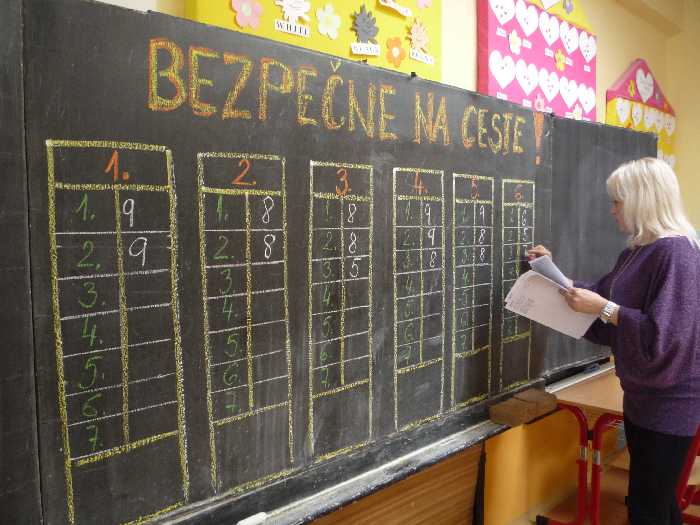 WHITE
BEZPEČNE NA CESTE!
1. 2. 3. 4. 5. 6.
1. 9
2. 9
3.
4.
5.
6.
7.
1. 8
2. 8
3.
4.
5.
6.
7.
1. 8
2. 8
3. 5
4.
5.
6.
7.
1. 9
2. 9
3. 8
4.
5.
6.
7.
1. 9
2. 8
3. 8
4.
5.
6.
7.